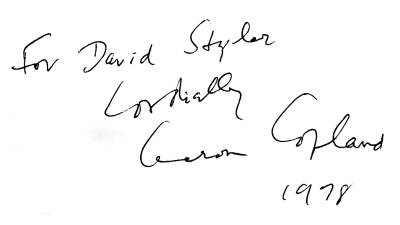 For David Styler
Cordially
Aaron Copland
1978